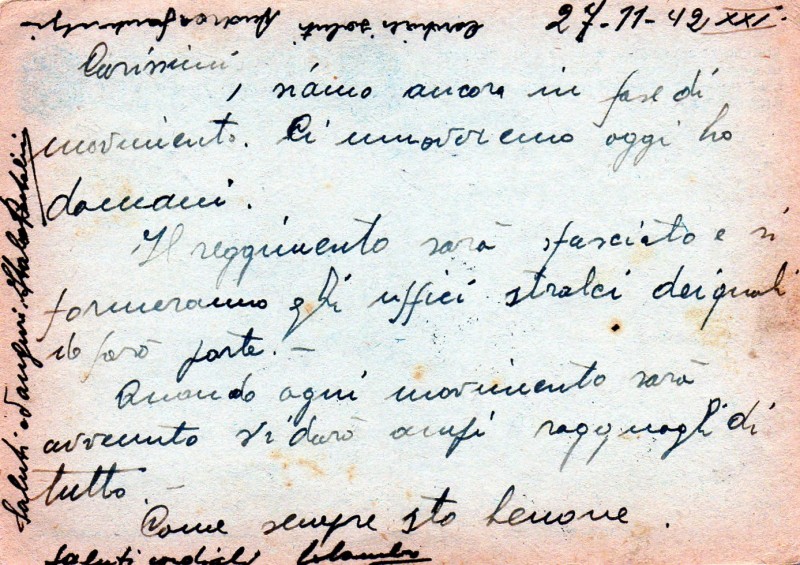 27-11-42 XXI.
Cordiali saluti
Carissimi,
siamo ancora in fase di
movimento. Ci muoveremo oggi ho
domani.
Il reggimento sarà sfasciato e si
formeranno gli uffici stralci dei quali
io farò parte. –
Quando ogni movimento sarà
avvenuto vi darò ampi ragguagli di
tutto. –
Come sempre sto benone.
Saluti cordiali
Saluti ed auguri